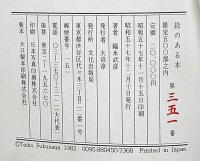 絵のある本
限定五〇〇部之内 第三五一番
定価 二〇、〇〇〇円
昭和五十七年十一月十五日印刷
昭和五十七年十二月十日発行
著者 福永武彦
発行者 大沼淳
発行所 文化出版局
東京都渋谷区代々木三丁目二二番一号
郵便番号 一五一
電話 〇三-三七〇-三一一一(大代表)
振替 東京三-一九五六七〇
印刷 日本写真印刷株式会社
製本 大口製本印刷株式会社
©Teiko Fukunaga 1982 0095-880450-7368 Printed in Japan